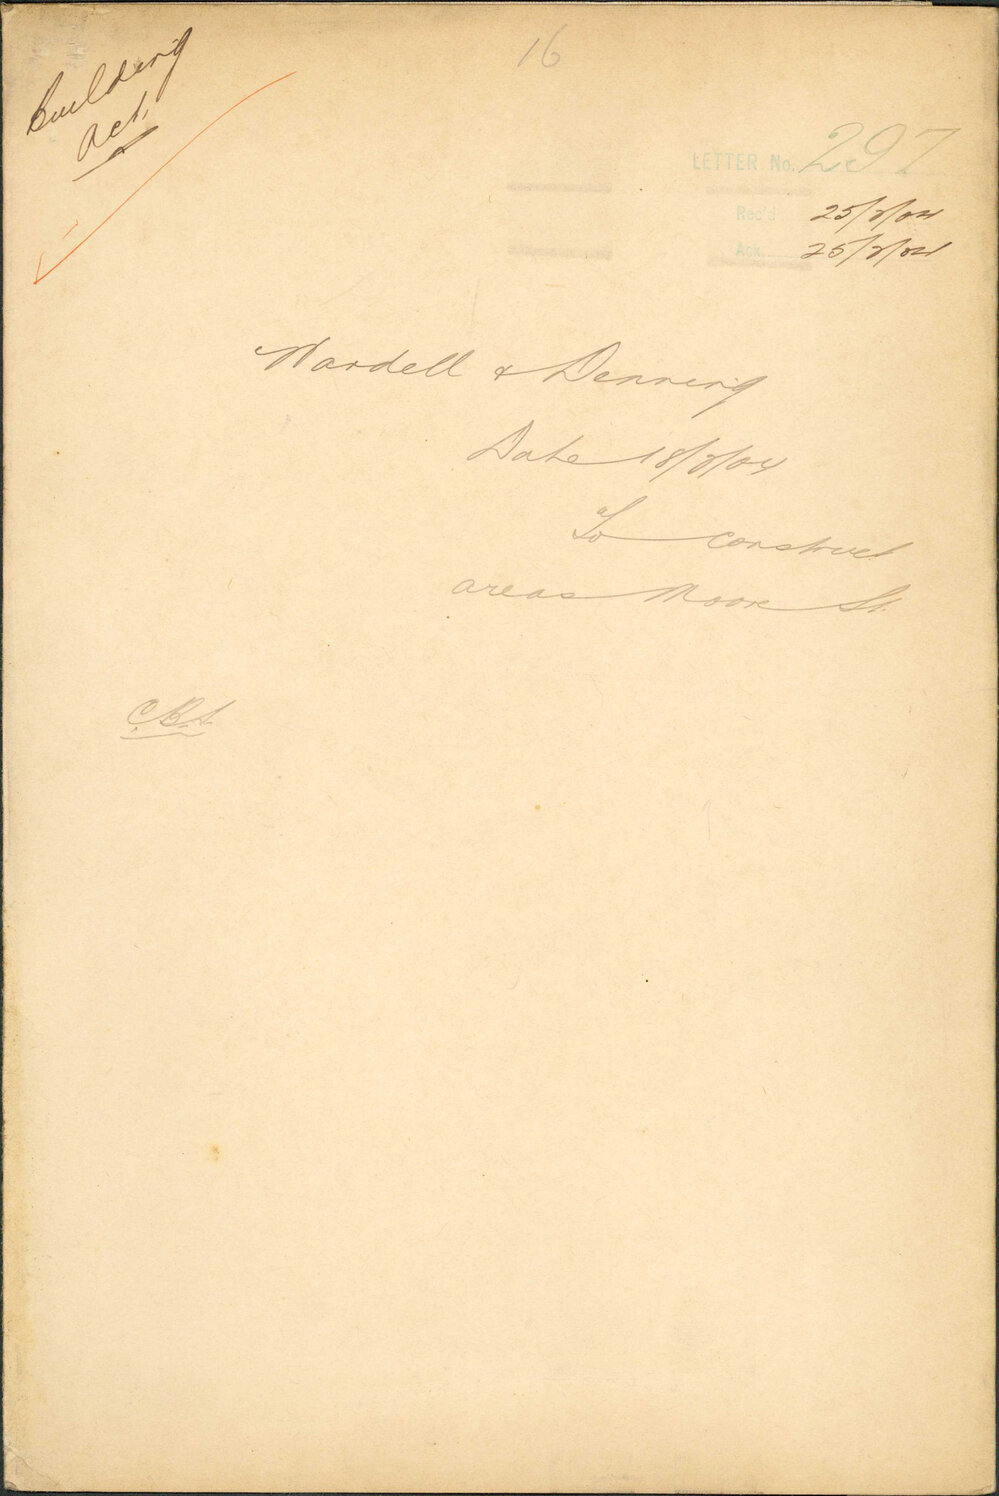 Building
Act.
16
LETTER No. 297
Rec'd 25/2/04
Ack. 25/2/04
Wardell & Denning
Date 18/2/04
To construct
areas Moore St.